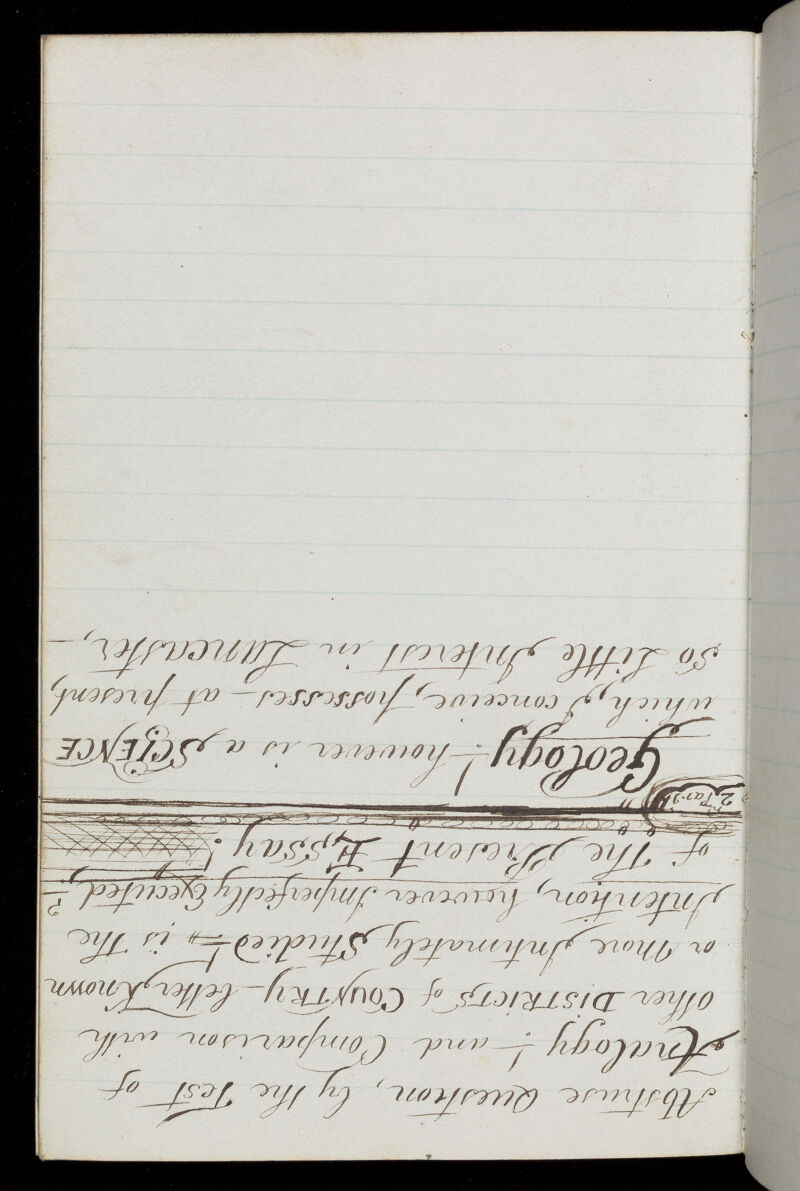 Abstruse Question, by the Test of
Analogy! – and Comparison with
other DISTRICTS of COUNTRY – better Known
or More Intimately Studied! – is the
Intention, however Imperfectly Executed,
of The Present Essay!
2 Par:
Geology! – however is a SCIENCE
which, I conceive, possesses – at present,
So Little Interest in Lancaster, –